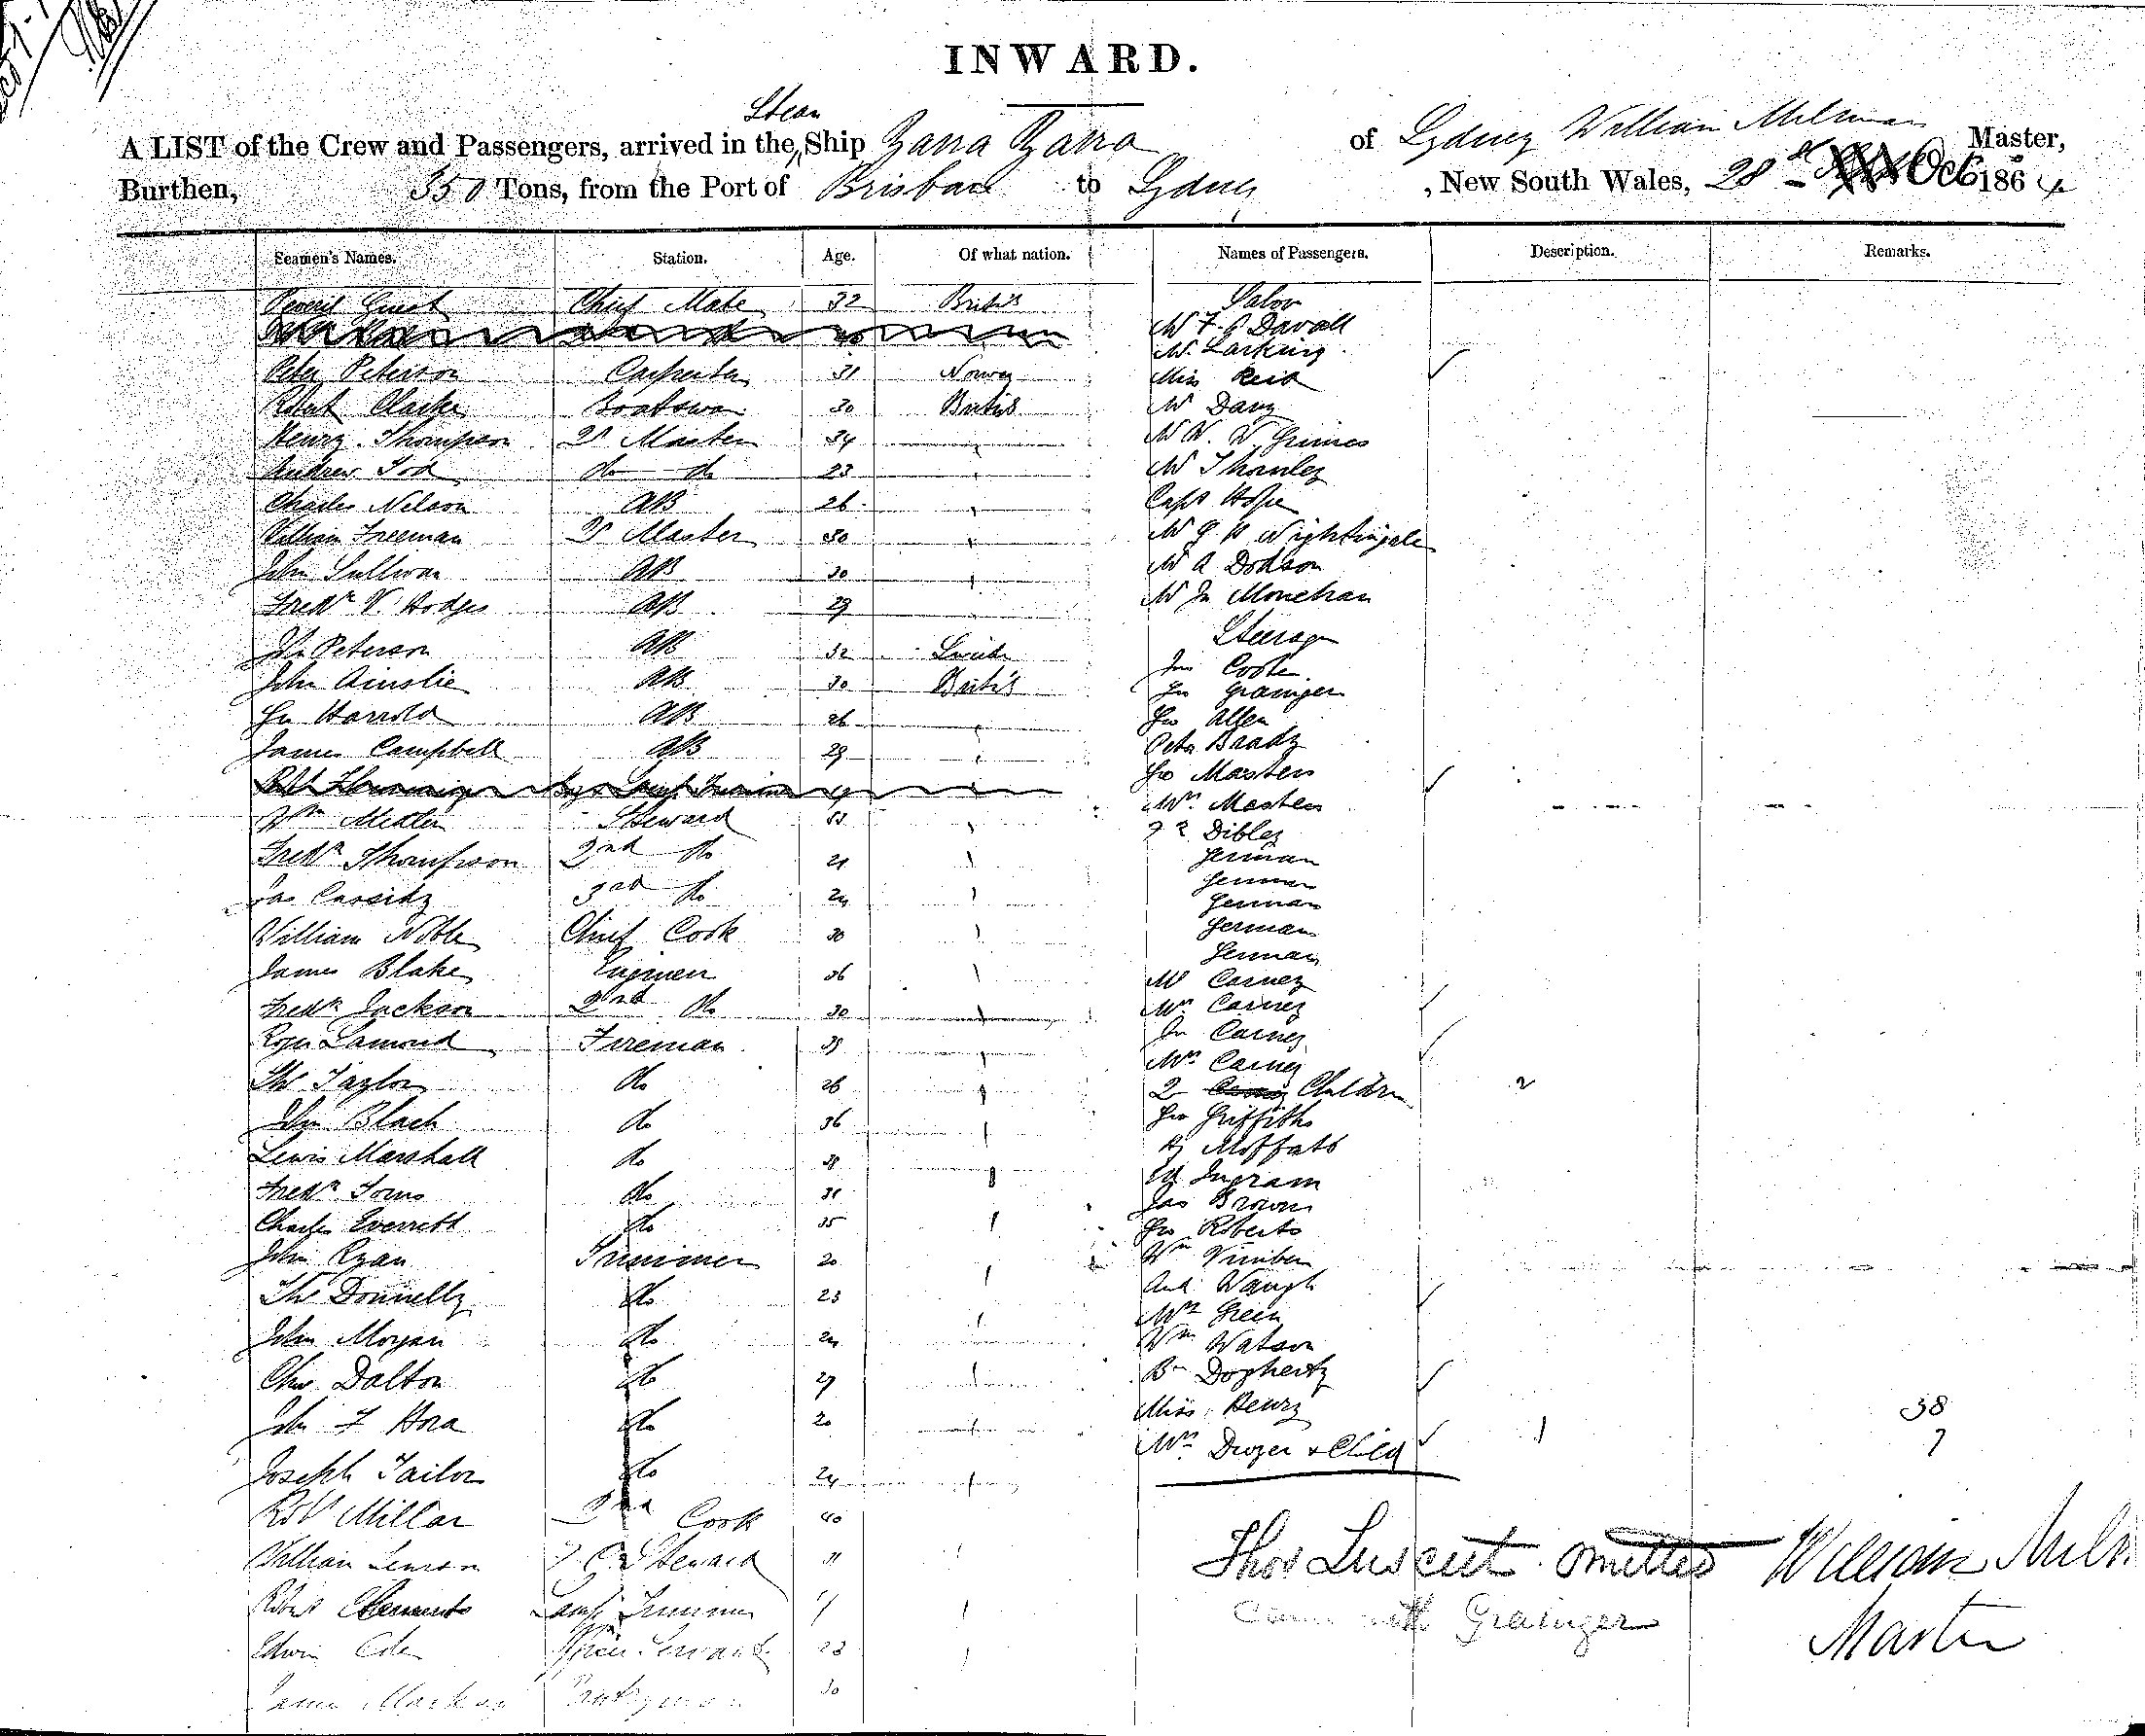 INWARD.
Steam
A LIST of the Crew and Passengers, arrived in the Ship Yarra Yarra of Sydney William Milman Master,
Burthen, 350 Tons, from the Port of Brisbane to Sydney, New South Wales, 28th Oct 1864
Seamen's Names. Station. Age. Of what nation. Names of Passengers. Description. Remarks.
Chief Mate 32 British
Peter Peterson Carpenter 31 Norway
Robert Clarke Boatswain 30 British
Henry Thompson Qr Master 34 "
Andrew Tod do do 23 "
Charles Nelson AB 26 "
William Freeman Qr Master 30 "
John Sullivan AB 30 "
Fredk V. Hodges AB 29
Jn Peterson AB 32
John Ainslie AB 30 British
Harrold AB 26 "
James Campbell AB 29 "
Wm Steward "
Fredk Thompson 2nd do 21 "
Jas Cassidy 3rd do 24 "
William Noble Chief Cook 30 "
James Blake Engineer 36 "
Fredk Jackson 2nd do 30 "
Roger Lamond Fireman "
Thos Taylor do 26 "
John Black do 36 "
Lewis Marshall do "
Fredk do
Charles Everrett do 35 "
John Ryan Trimmer 20
Thos Donnelly do 23 "
John Morgan do 24 "
Chas Dalton do 29 "
John F Hora do 20 "
Joseph Tailor do 24 "
Robt Millar 2nd Cook 40
William Steward 31 "
Robert Lamp Trimmer "
Edwin 23 "
James 30
Saloon
Mr F G Davall
Mr Larking
Miss Reid
Mr Davy
Mr W. W Grimes
Mr Thornley
Capt Hope
Mr G H Nightingale
Mr A Dodson
Mr Jn Monehan
Steerage
Jas Coote
Jn Grainger
Geo Allen
Peter Brady
Geo Masters
Mrs Masters
Dibley
German
German
German
German
German
Mr Carney
Mrs Carney
Jn Carney
Mrs Carney
2 Children 2
Geo Griffiths
Hy Moffatt
Ed Ingram
Jas Brown
Geo Roberts
Wm
And Waugh
Mrs Green
Wm Watson
Bn Dogherty
Miss Henry
Mrs Dwyer & Child 1
38
7
Thos omitted
came with Grainger
William Milman
Master